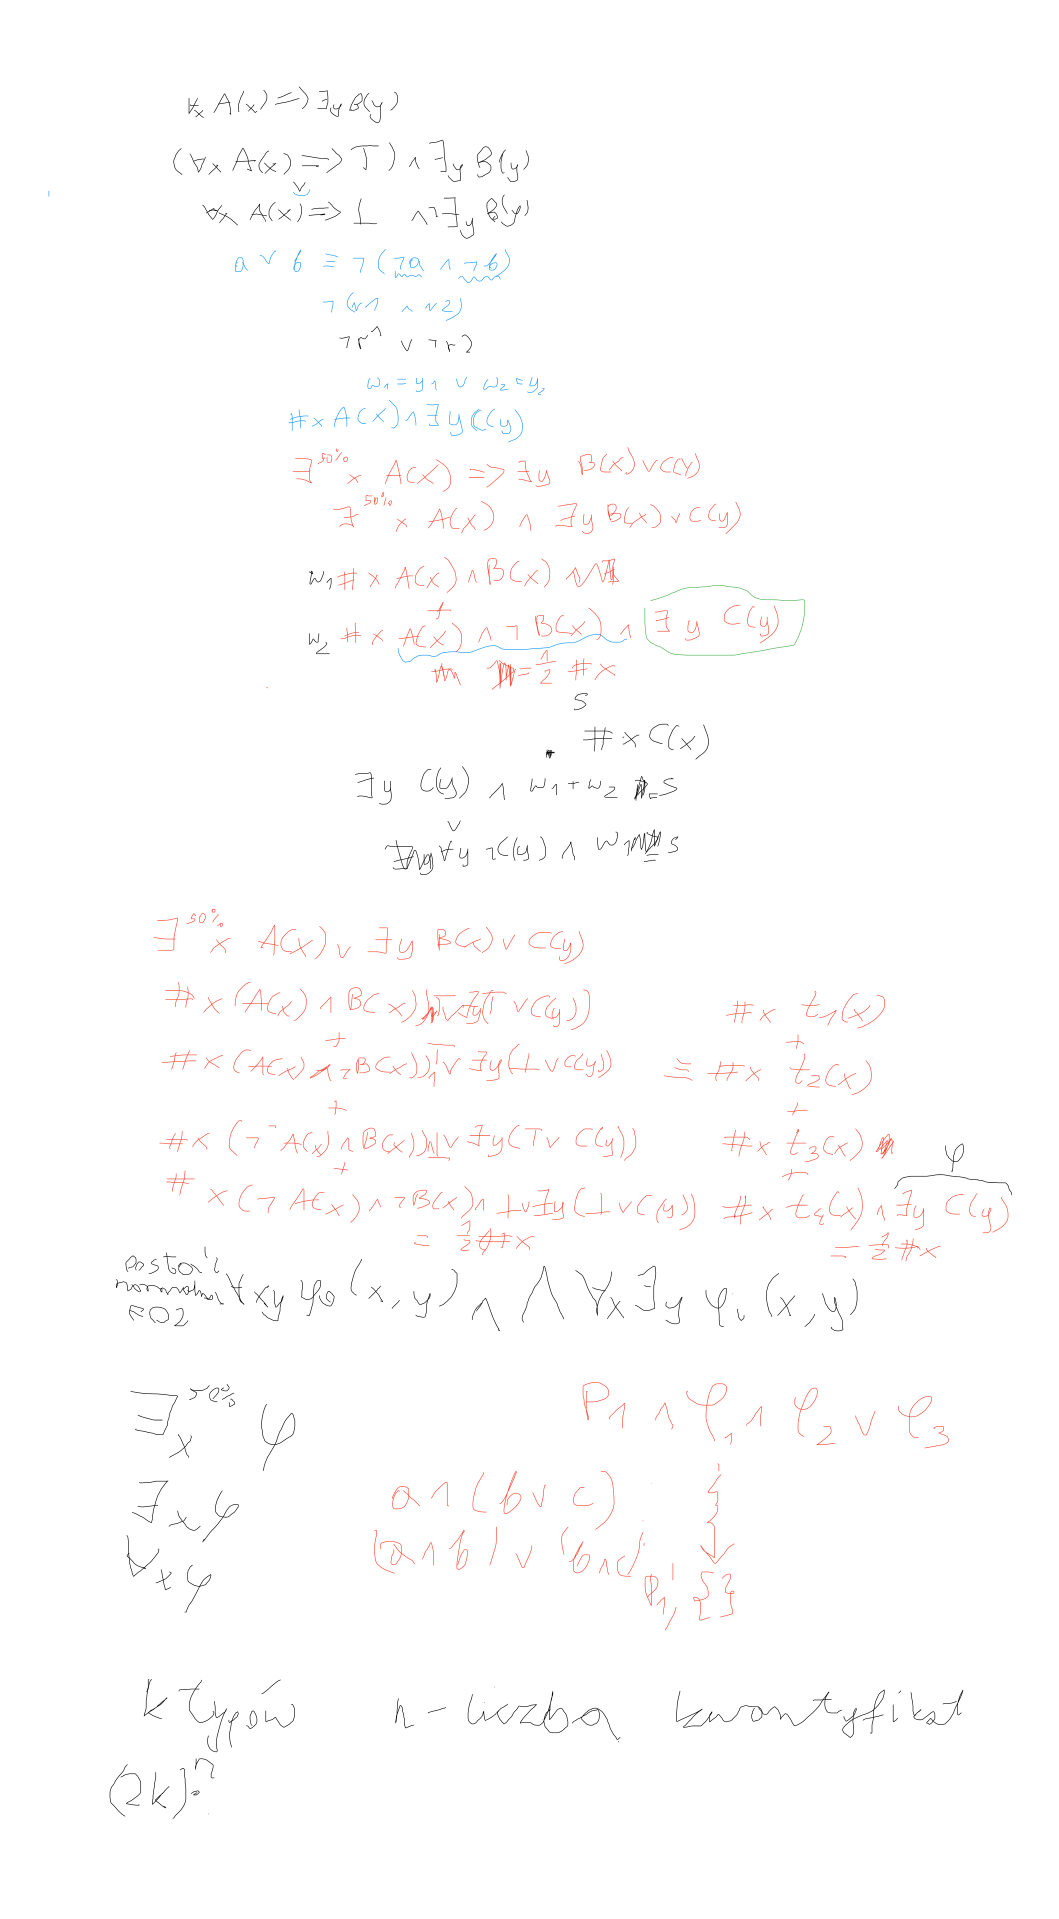 ∀x A(x) => ∃y B(y)
(∀x A(x) => T) ∧ ∃y B(y)
∨
∀x A(x) => ⊥ ∧ ¬∃y B(y)
a ∨ b ≡ ¬(¬a ∧ ¬b)
¬(r1 ∧ r2)
¬r1 ∨ ¬r2
w1 = y1 ∨ w2 = y2
#x A(x) ∧ ∃y C(y)
∃^50% x A(x) => ∃y B(x) ∨ C(y)
∃^50% x A(x) ∧ ∃y B(x) ∨ C(y)
w1 #x A(x) ∧ B(x)
+
w2 #x A(x) ∧ ¬B(x) ∧ ∃y C(y)
= 1/2 #x
s
#x C(x)
∃y C(y) ∧ w1 + w2 = s
∨
∀y ¬C(y) ∧ w1 = s
∃^50% x A(x) ∨ ∃y B(x) ∨ C(y)
#x (A(x) ∧ B(x)) ∧ T ∨ ∃y(T ∨ C(y)) #x t1(x)
+ +
#x (A(x) ∧ ¬B(x)) ∧ T ∨ ∃y(⊥ ∨ C(y)) ≡ #x t2(x)
+ +
#x (¬A(x) ∧ B(x)) ∧ ⊥ ∨ ∃y(T ∨ C(y)) #x t3(x)
+ + φ
#x (¬A(x) ∧ ¬B(x) ∧ ⊥ ∨ ∃y(⊥ ∨ C(y)) #x t4(x) ∧ ∃y C(y)
= 1/2 #x = 1/2 #x
postać
normalna ∀xy φ0(x,y) ∧ ⋀ ∀x∃y φi(x,y)
FO2
∃^50% x φ P1 ∧ φ1 ∧ φ2 ∨ φ3
∃x φ a ∧ (b ∨ c)
∀x φ (a ∧ b) ∨ (b ∧ c)
P1, {}
k typów n - liczba kwantyfikat
(2k)^n?